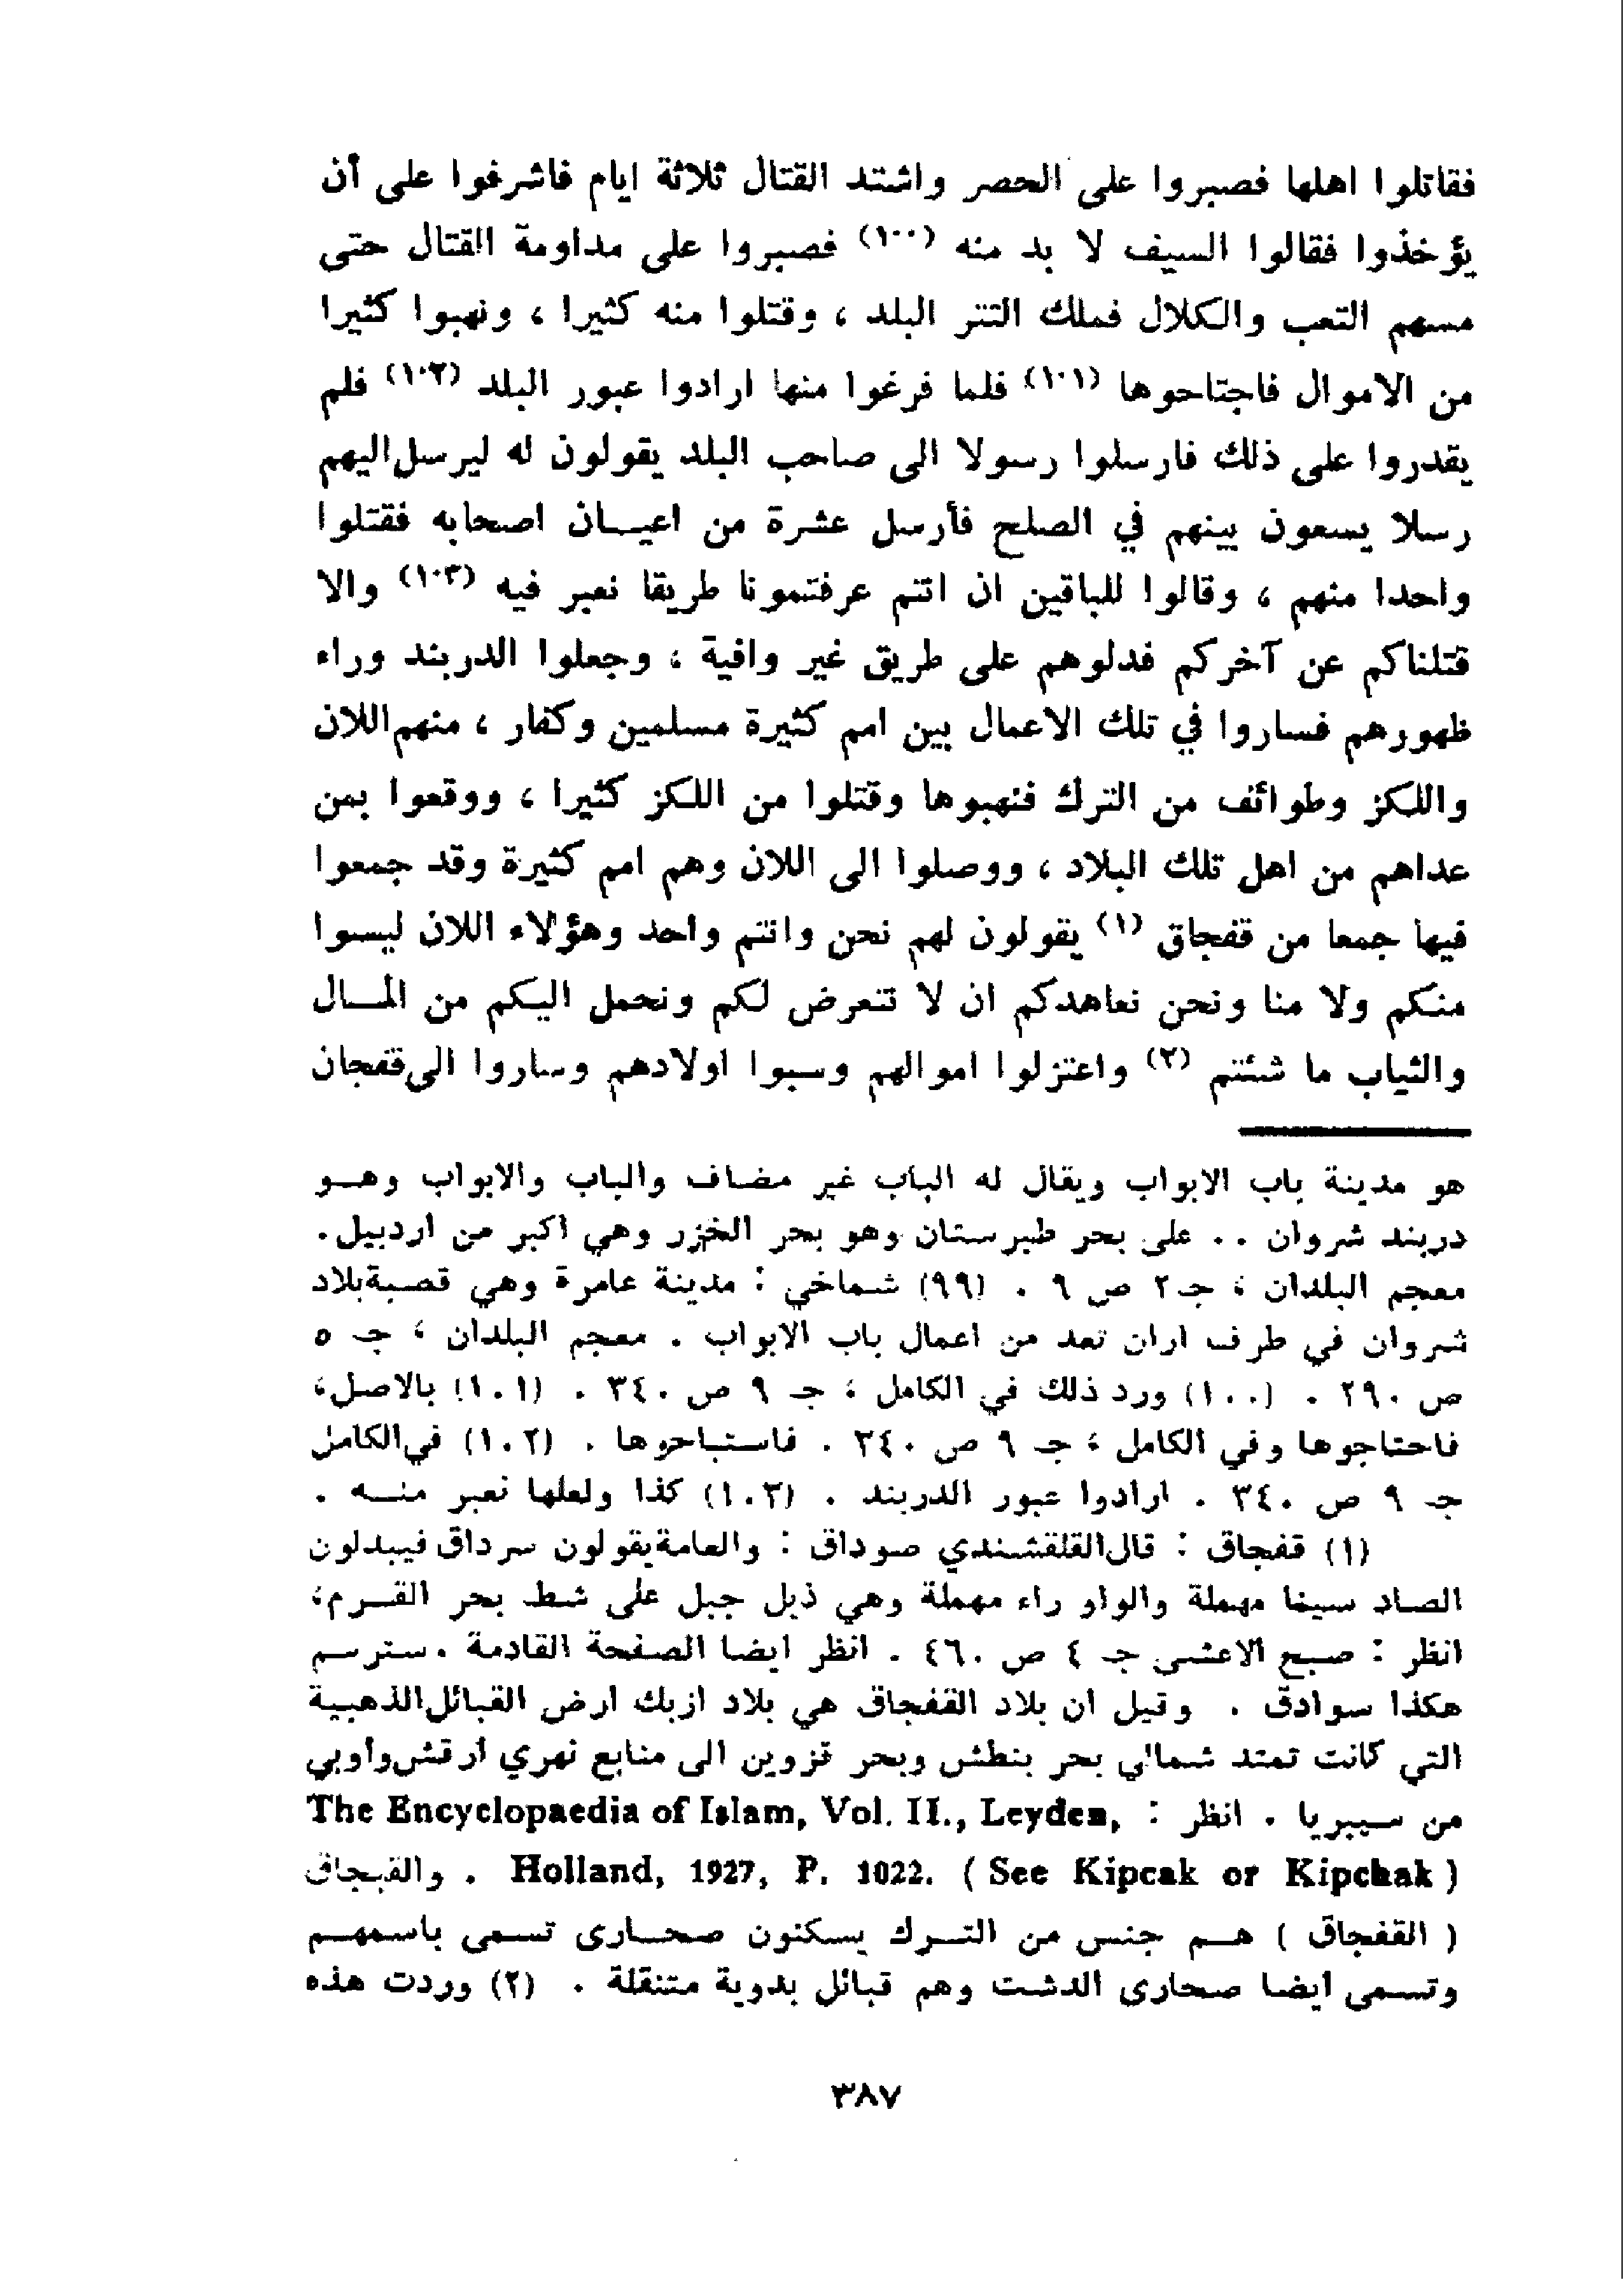 فقاتلوا اهلها فصبروا على الحصر واشتد القتال ثلاثة ايام فاشرغوا على أن
يؤخذوا فقالوا السيف لا بد منه (١٠٠) فصبروا على مداومة القتال حتى
مسهم التعب والكلال فملك التتر البلد ، وقتلوا منه كثيرا ، ونهبوا كثيرا
من الاموال فاجتاحوها (١٠١) فلما فرغوا منها ارادوا عبور البلد (١٠٢) فلم
يقدروا على ذلك فارسلوا رسولا الى صاحب البلد يقولون له ليرسل اليهم
رسلا يسعون بينهم في الصلح فأرسل عشرة من اعيـــان اصحابه فقتلوا
واحدا منهم ، وقالوا للباقين ان انتم عرفتمونا طريقا نعبر فيه (١٠٣) والا
قتلناكم عن آخركم فدلوهم على طريق غير وافية ، وجعلوا الدربند وراء
ظهورهم فساروا في تلك الاعمال بين امم كثيرة مسلمين وكفار ، منهم اللان
واللكز وطوائف من الترك فنهبوها وقتلوا من اللكز كثيرا ، ووقعوا بمن
عداهم من اهل تلك البلاد ، ووصلوا الى اللان وهم امم كثيرة وقد جمعوا
فيها جمعا من قفجاق (١) يقولون لهم نحن وانتم واحد وهؤلاء اللان ليسوا
منكم ولا منا ونحن نعاهدكم ان لا نتعرض لكم ونحمل اليكم من المـــال
والثياب ما شئتم (٢) واعتزلوا اموالهم وسبوا اولادهم وساروا الى قفجان
هو مدينة باب الابواب ويقال له الباب غير مضاف والباب والابواب وهـــو
دربند شروان . . على بحر طبرستان وهو بحر الخزر وهي اكبر من اردبيل .
معجم البلدان ، جـ ٢ ص ٩ . (٩٩) شماخي : مدينة عامرة وهي قصبة بلاد
شروان في طرف اران تعد من اعمال باب الابواب . معجم البلدان ، جـ ٥
ص ٢٩٠ . (١٠٠) ورد ذلك في الكامل ، جـ ٩ ص ٣٤٠ . (١٠١) بالاصل،
فاحتاجوها وفي الكامل ، جـ ٩ ص ٣٤٠ . فاستباحوها . (١٠٢) في الكامل
جـ ٩ ص ٣٤٠ . ارادوا عبور الدربند . (١٠٣) كذا ولعلها نعبر منـــه .
(١) قفجاق : قال القلقشندي صوداق : والعامة يقولون سرداق فيبدلون
الصاد سينا مهملة والواو راء مهملة وهي ذيل جبل على شط بحر القـــرم،
انظر : صبح الاعشى جـ ٤ ص ٤٦٠ . انظر ايضا الصفحة القادمة . سترسم
هكذا سوادق . وقيل ان بلاد القفجاق هي بلاد ازبك ارض القبائل الذهبية
التي كانت تمتد شمالي بحر بنطش وبحر قزوين الى منابع نهري أرقش وأوبي
من سيبريا . انظر : The Encyclopaedia of Islam, Vol. II., Leyden,
Holland, 1927, P. 1022. ( See Kipcak or Kipchak ) . والقبجاق
( القفجاق ) هـــم جنس من التـــرك يسكنون صحـــارى تسمى باسمهـــم
وتسمى ايضا صحارى الدشت وهم قبائل بدوية متنقلة . (٢) وردت هذه
٣٨٧